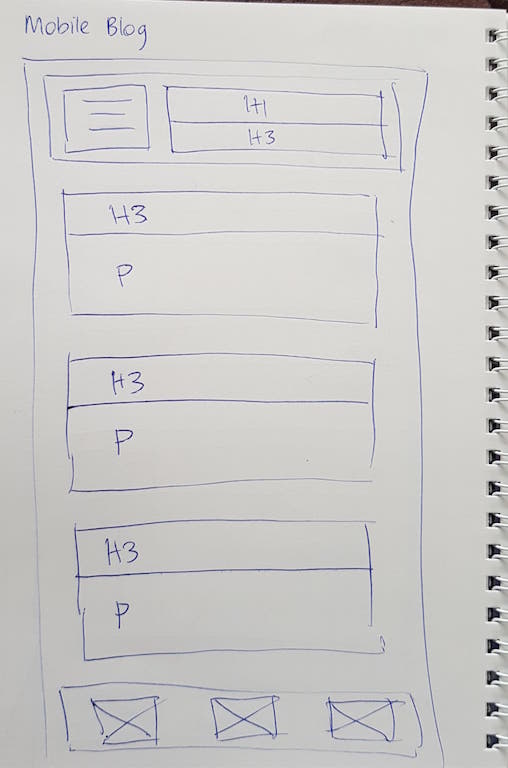 Mobile Blog
H1
H3
H3
P
H3
P
H3
P